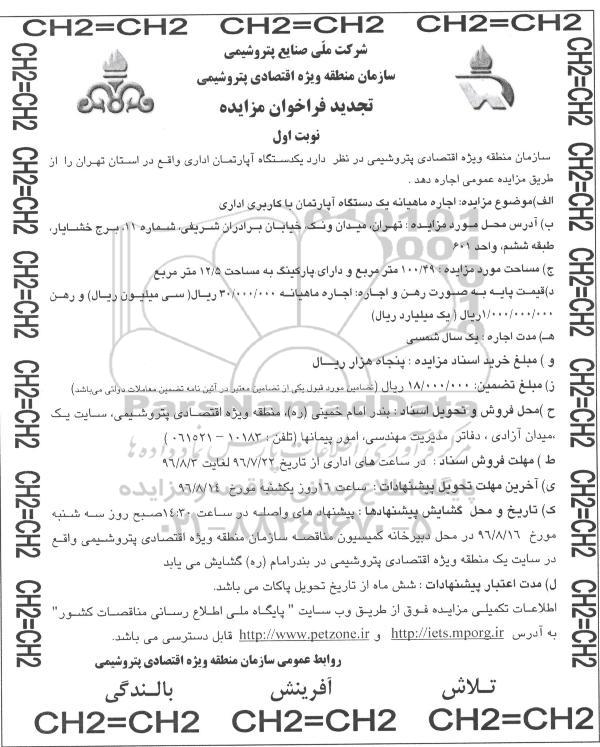 CH2=CH2 CH2=CH2 CH2=CH2
شرکت ملّی صنایع پتروشیمی
سازمان منطقه ویژه اقتصادی پتروشیمی
تجدید فراخوان مزایده
نوبت اول
سازمان منطقه ویژه اقتصادی پتروشیمی در نظر دارد یکدستگاه آپارتمان اداری واقع در استان تهران را از
طریق مزایده عمومی اجاره دهد .
الف)موضوع مزایده: اجاره ماهیانه یک دستگاه آپارتمان با کاربری اداری
ب) آدرس محل مورد مزایده : تهران، میدان ونک، خیابان برادران شریفی، شماره ۱۱، برج خشایار،
طبقه ششم، واحد ۶۰۱
ج) مساحت مورد مزایده : ۱۰۰/۴۹ متر مربع و دارای پارکینگ به مساحت ۱۲/۵ متر مربع
د)قیمت پایه به صورت رهن و اجاره: اجاره ماهیانه ۳۰/۰۰۰/۰۰۰ ریال( سی میلیون ریال) و رهن
۱/۰۰۰/۰۰۰/۰۰۰ریال ( یک میلیارد ریال)
هـ) مدت اجاره : یک سال شمسی
و ) مبلغ خرید اسناد مزایده : پنجاه هزار ریــال
ز) مبلغ تضمین: ۱۸/۰۰۰/۰۰۰ ریال (تضامین مورد قبول یکی از تضامین معتبر در آئین نامه تضمین معاملات دولتی می‌باشد)
ح )محل فروش و تحویل اسناد : بندر امام خمینی (ره)، منطقه ویژه اقتصادی پتروشیمی، سایت یک
،میدان آزادی ، دفاتر مدیریت مهندسی، امور پیمانها (تلفن : ۱۰۱۸۳ – ۰۶۱۵۲۱ )
ط ) مهلت فروش اسناد : در ساعت های اداری از تاریخ ۹۶/۷/۲۲ لغایت ۹۶/۸/۳
ی) آخرین مهلت تحویل پیشنهادات : ساعت ۱۶روز یکشنبه مورخ ۹۶/۸/۱۴
ک) تاریخ و محل گشایش پیشنهادها : پیشنهاد های واصله در ساعت ۱۴:۳۰صبح روز سه شنبه
مورخ ۹۶/۸/۱۶ در محل دبیرخانه کمیسیون مناقصه سازمان منطقه ویژه اقتصادی پتروشیمی واقع
در سایت یک منطقه ویژه اقتصادی پتروشیمی در بندرامام (ره) گشایش می یابد
ل) مدت اعتبار پیشنهادات : شش ماه از تاریخ تحویل پاکات می باشد.
اطلاعات تکمیلی مزایده فوق از طریق وب سایت " پایگاه ملی اطلاع رسانی مناقصات کشور"
به آدرس http://iets.mporg.ir و http://www.petzone.ir قابل دسترسی می باشد.
روابط عمومی سازمان منطقه ویژه اقتصادی پتروشیمی
تـلاش آفرینش بالـندگی
CH2=CH2 CH2=CH2 CH2=CH2
CH2=CH2
CH2=CH2
CH2=CH2
CH2=CH2
CH2=CH2
CH2=CH2
CH2=CH2
CH2=CH2
CH2=CH2
CH2=CH2
CH2=CH2
CH2=CH2
ParsNamadData
۰۲۱-۸۸۳۴۹۶۷۰-۵